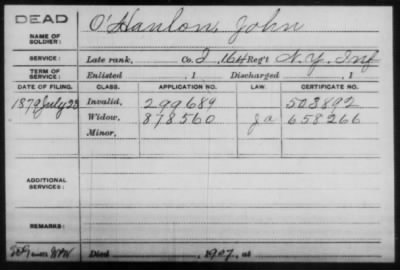 DEAD
NAME OF SOLDIER: O'Hanlon, John
SERVICE: Late rank, Co. I, 164 Reg't N.Y. Inf
TERM OF SERVICE: Enlisted , 1 Discharged , 1
DATE OF FILING. CLASS. APPLICATION NO. LAW. CERTIFICATE NO.
1879 July 28 Invalid, 299689 503892
Widow, 878560 658266
Minor,
ADDITIONAL SERVICES:
REMARKS:
Died , 1907, at